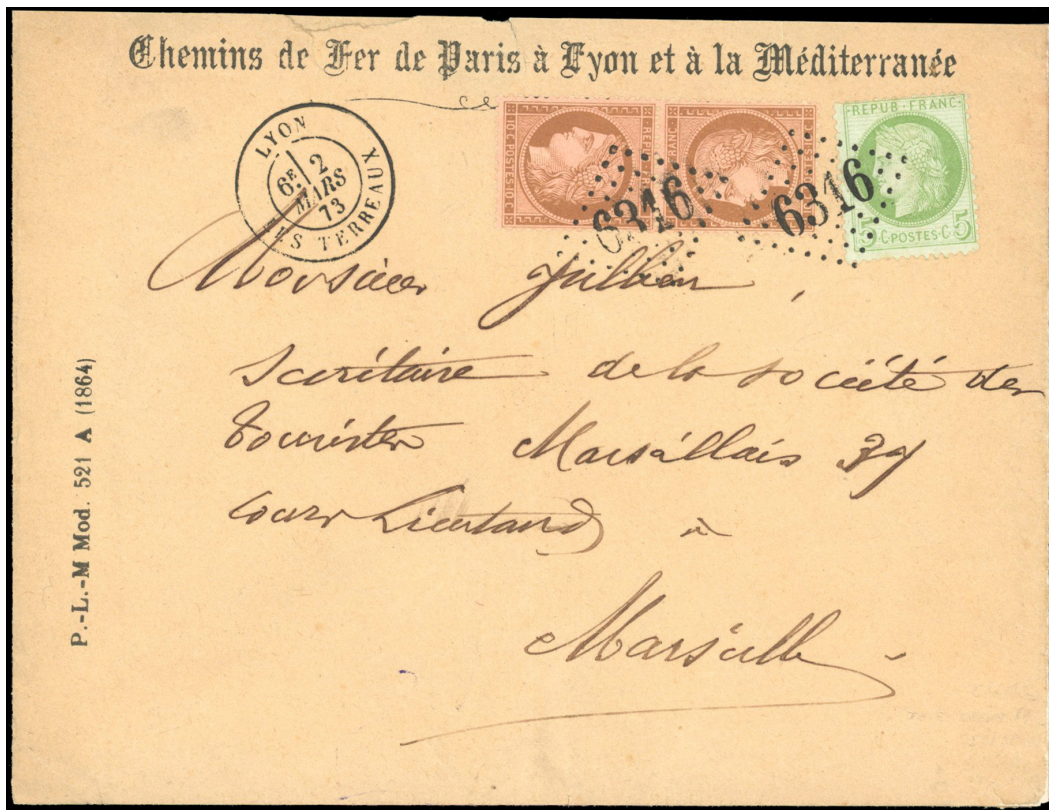 Chemins de Fer de Paris à Lyon et à la Méditerranée
LYON
6E 2
MARS
73
LES TERREAUX
10 C POSTES 10 C
REPUB FRANC
6316
6316
REPUB FRANC
5 C POSTES C 5
Monsieur Jullien,
Secrétaire de la société des
Touristes Marseillais 39
cours Lieutaud à
Marseille
P.-L.-M Mod. 521 A (1864)